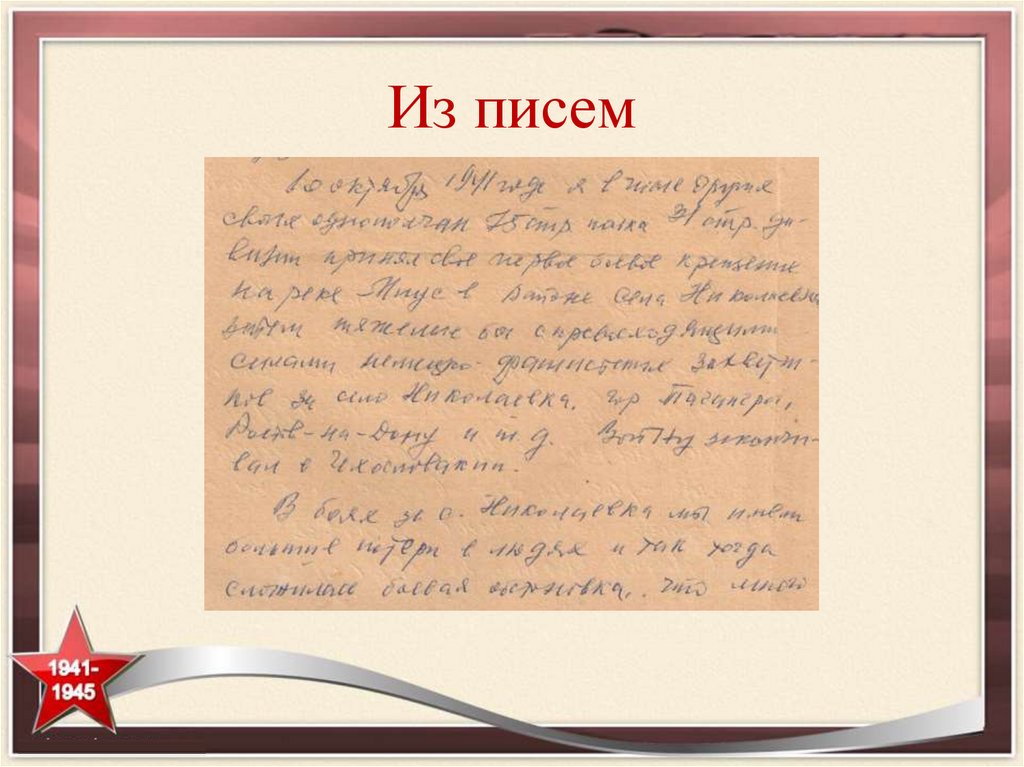 Из писем
10 октября 1941 года я в числе других
своих однополчан 75 стр. полка 31 стр. ди-
визии принял свое первое боевое крещение
на реке Миус в районе села Николаевка,
затем тяжелые бои с превосходящими
силами немецко-фашистских захватчи-
ков за село Николаевка, гор Таганрог,
Ростов-на-Дону и т.д. Войну закончи-
вал в Чехословакии.
В боях за с. Николаевка мы имели
большие потери в людях и так тогда
сложилась боевая обстановка, что много
1941-
1945